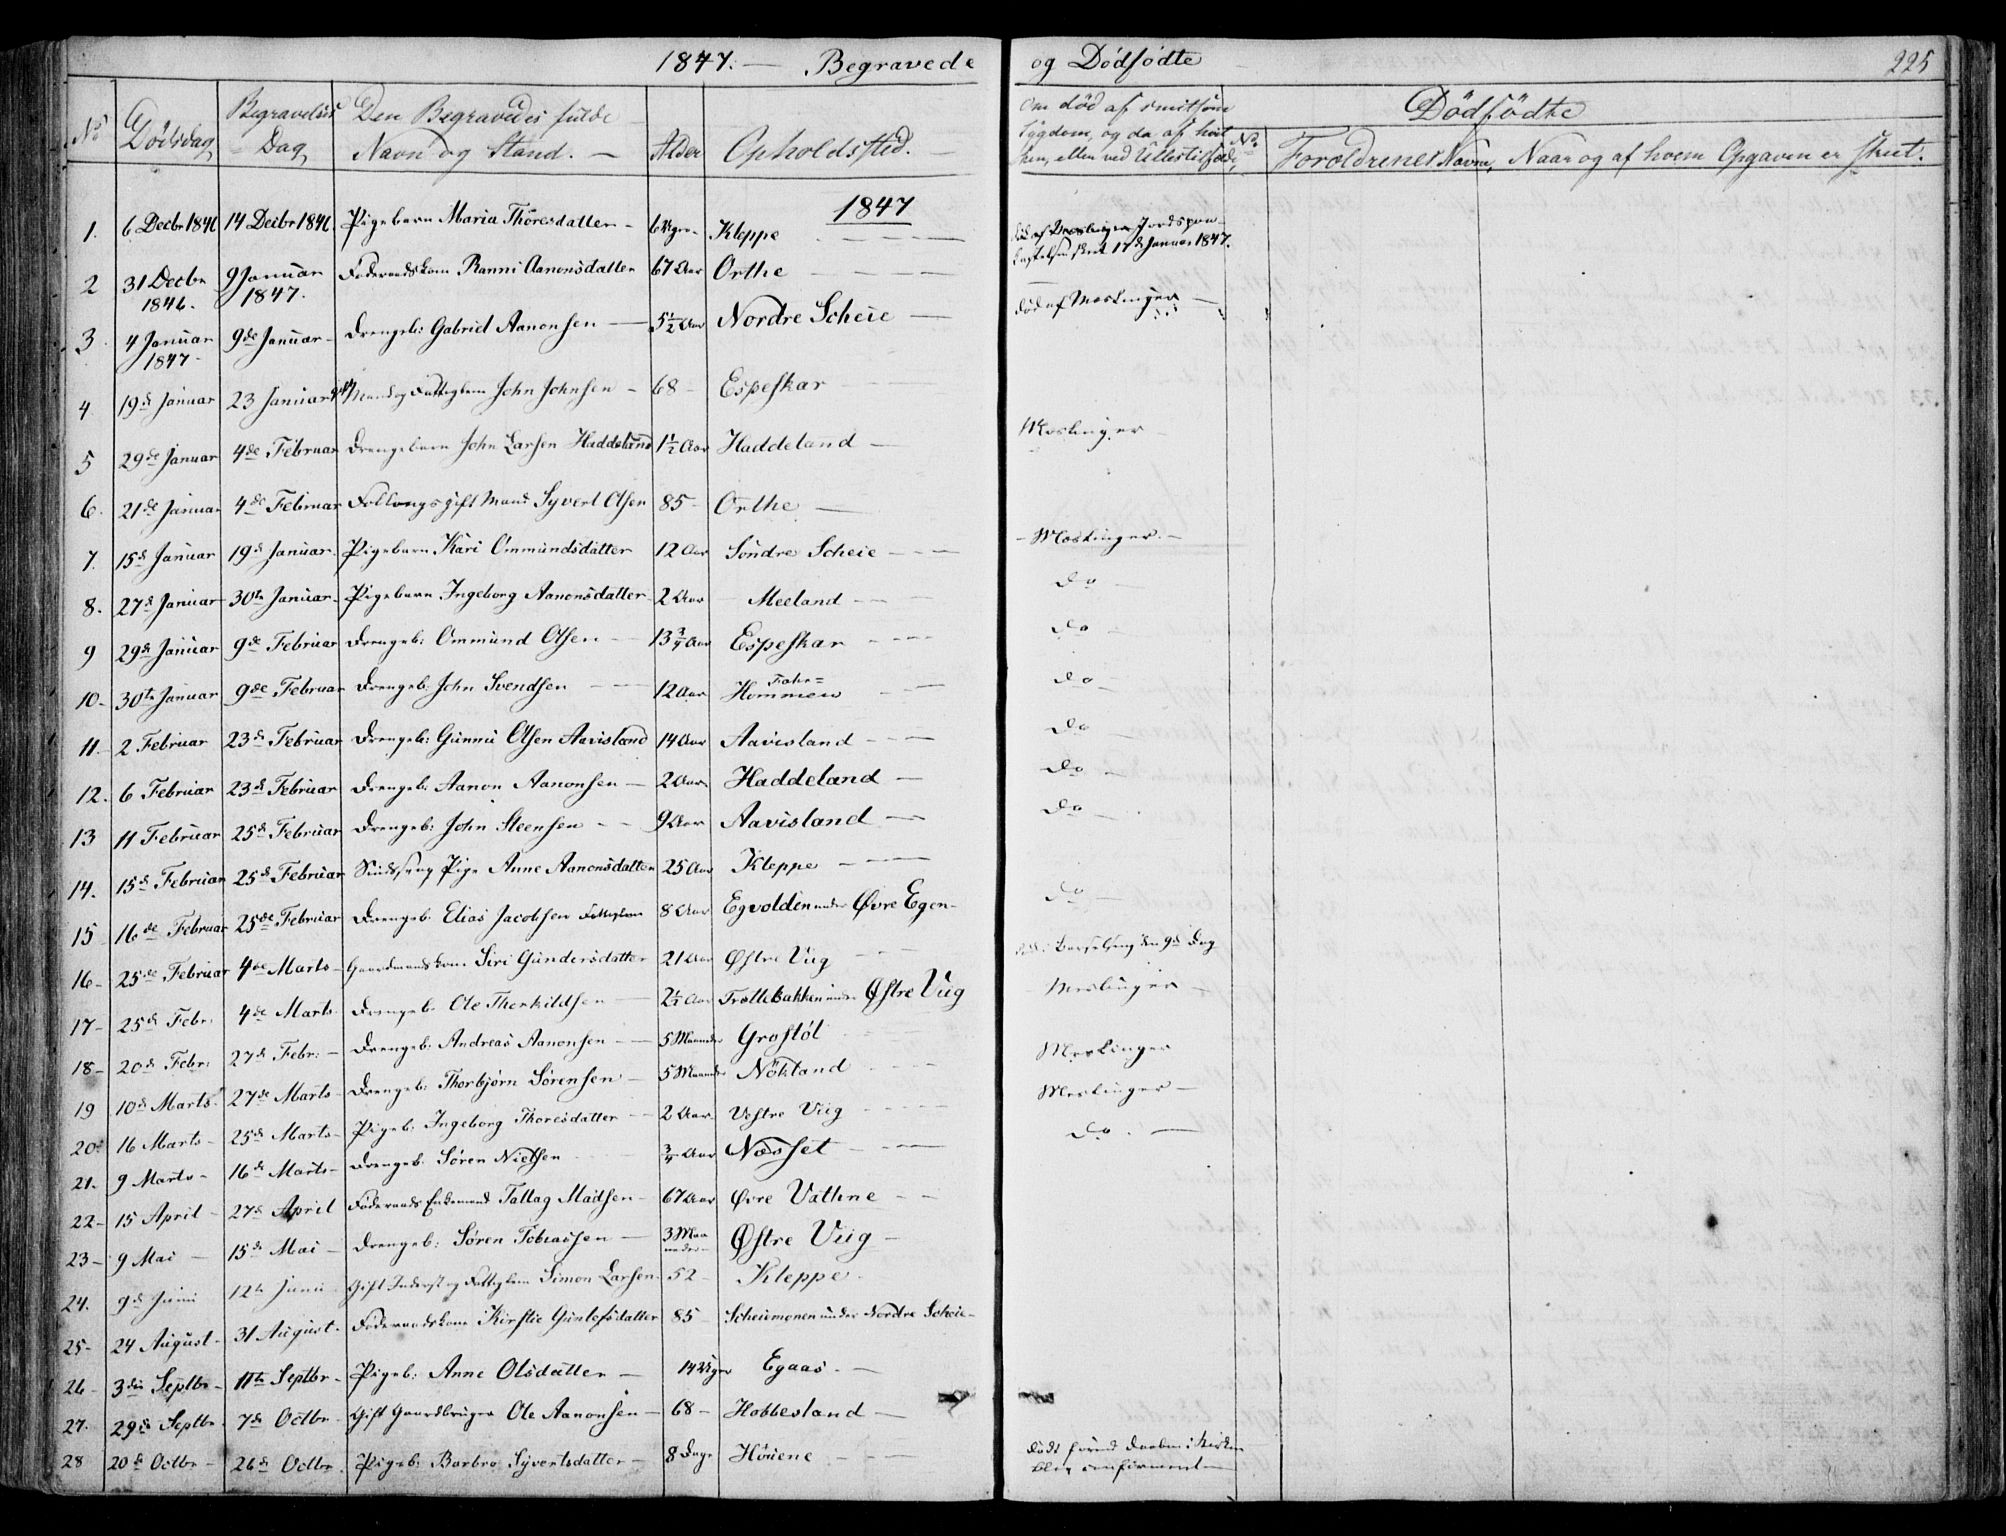 1847. — Begravede og Dödfödte 225
No Dödsdag Begravelses Dag Den Begravedes fulde Navn og Stand. — Alder Opholdssted. —
om död af smitsom Sygdom, og da af hvil-
ken, eller ved Ulles tilfælde,
No Dödfödte
Forældrenes Navne, Naar og af hvem Opgaven er skeet.
1847
1. 6 Decbr 1846 14 Decbr 1846 Pigebarn Maria Thoresdatter — 6 Uger — Kleppe
17d Januar 1847.
2 31 Decbr 1846. 9 Januar 1847. Föderaadskone Ranni Aanonsdatter 67 Aar Orthe
3 4 Januar 1847 — 9de Januar — Drengeb: Gabriel Aanonsen — 5½ Aar Nordre Scheie — död af Meslinger —
4 19d Januar 23 Januar Mand og Fattiglem John Johnsen — 68 — Espeskar
5 29de Januar 4de Februar Drengebarn John Larsen Haddeland 1½ Aar Haddeland — Meslinger —
6. 21de Januar 4de Februar gift Mand Syvert Olsen 85 — Orthe —
7. 15d Januar 19d Januar. Pigebarn Kari Ommundsdatter 12 Aar Söndre Scheie — Meslinger. —
8. 27d Januar 30te Januar. Pigebarn Ingeborg Aanonsdatter 2 Aar Meeland — do —
9 29de Januar 9de Februar Drengeb: Ommund Olsen — 13¾ Aar Espeskar do —
10. 30te Januar 9de Februar Drengeb: John Svendsen — 12 Aar Hommen do —
11. 2 Februar 23d Februar Drengeb: Gunnu Olsen Aavisland 14 Aar Aavisland — do —
12. 6 Februar 23d Februar Drengeb: Aanon Aanonsen — 2 Aar Haddeland — do —
13 11 Februar 25d Februar Drengeb: John Steensen — 9 Aar Aavisland — do —
14. 15d Februar 25d Februar Pige Anne Aanonsdatter 25 Aar Kleppe —
15 16de Februar 25de Februar Drengeb: Elias Jacobsen Fattiglem 8 Aar Egvolden under Øvre Egen — do —
16 — 25de Februar 4de Marts — Gaardmandskone Siri Gundersdatter 21 Aar Østre Viig — 9d Dag
17 — 25d Febr: 4de Marts. Drengeb: Ole Therkildsen — 2½ Aar Troltebakken under Østre Viig Meslinger —
18 — 20d Febr: 27d Febr: — Drengeb: Andreas Aanonsen — 5 Maaneder Grostöl Meslinger
19 10d Marts. 27de Marts — Drengeb: Thorbjørn Sørensen — 5 Maaneder Nökland Meslinger —
20. 16 Marts — 25d Marts — Pigeb: Ingeborg Thoresdatter — 2 Aar. Vestre Viig do. —
21. 9 Marts — 16de Marts — Drengeb: Søren Nielsen ¾ Aar Næsset
22 — 15 April — 27d April Föderaads Enkemand Tallag Madsen — 67 Aar Øvre Vathne —
23 — 9 Mai — 15d Mai — Drengeb: Søren Tobiassen — 3 Maaneder — Østre Viig —
24. 9d Juni 12te Juni Gift Inderst og Fattiglem Simon Larsen. 52 — Kleppe.
25 — 24 August — 31 August. Föderaadskone Kirstie Gunlefsdatter 85 — Scheiemonen under Nordre Scheie —
26 — 3die Septbr — 11te Septbr — Pigeb: Anne Olsdatter — 14 Uger Egaas. —
27. 29de Septbr — 7de Octbr — Gift Gaardbruger Ole Aanonsen — 68 — Hobbesland —
28 20d Octbr — 26d Octbr. Pigeb: Barbro Syvertsdatter — 8 Dage Höiene —